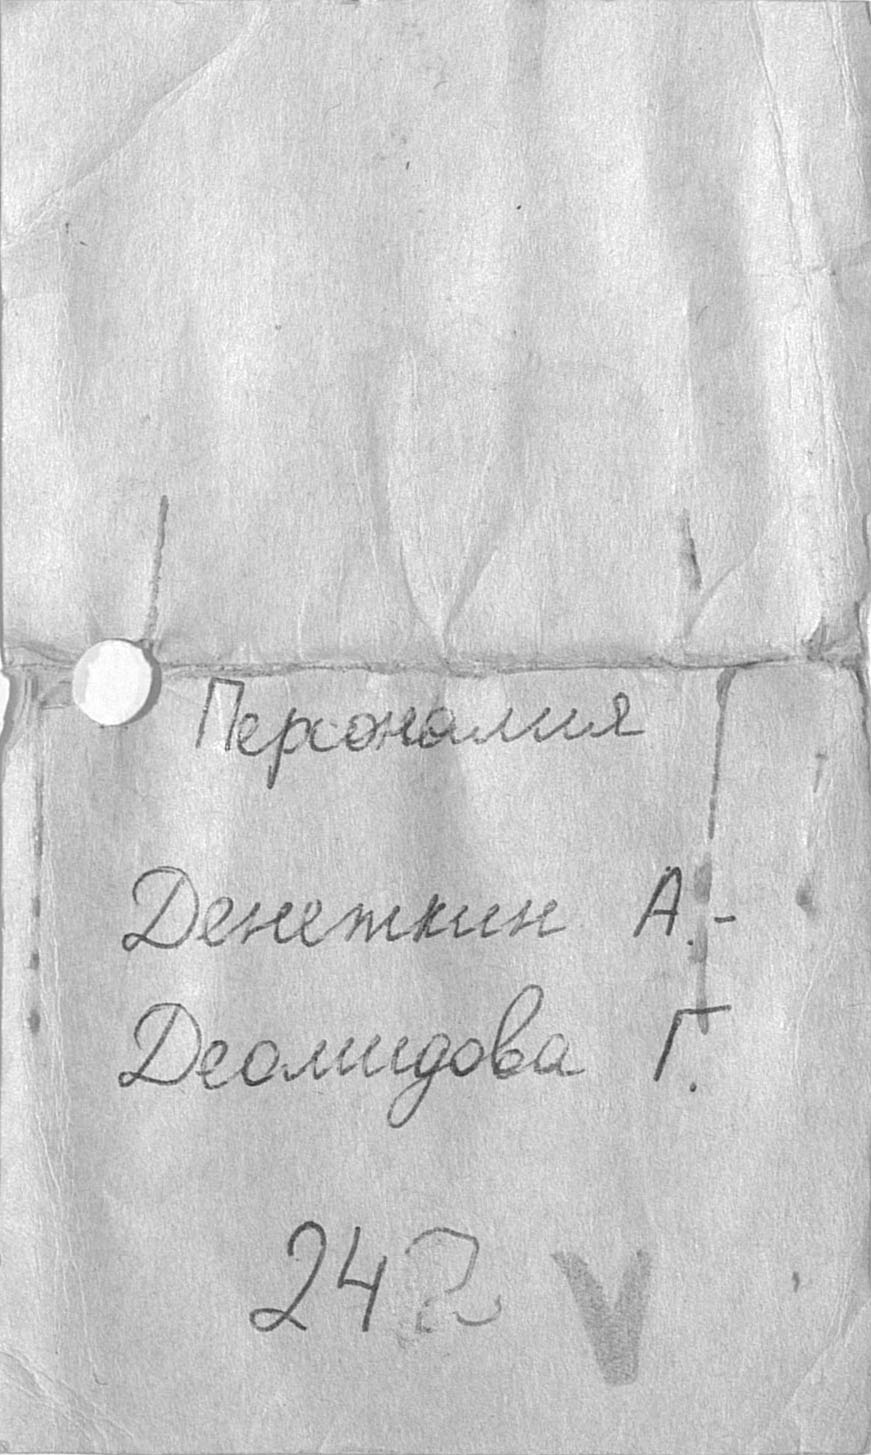 Персоналия
Денежкин А.-
Деомидова Г.
242 V